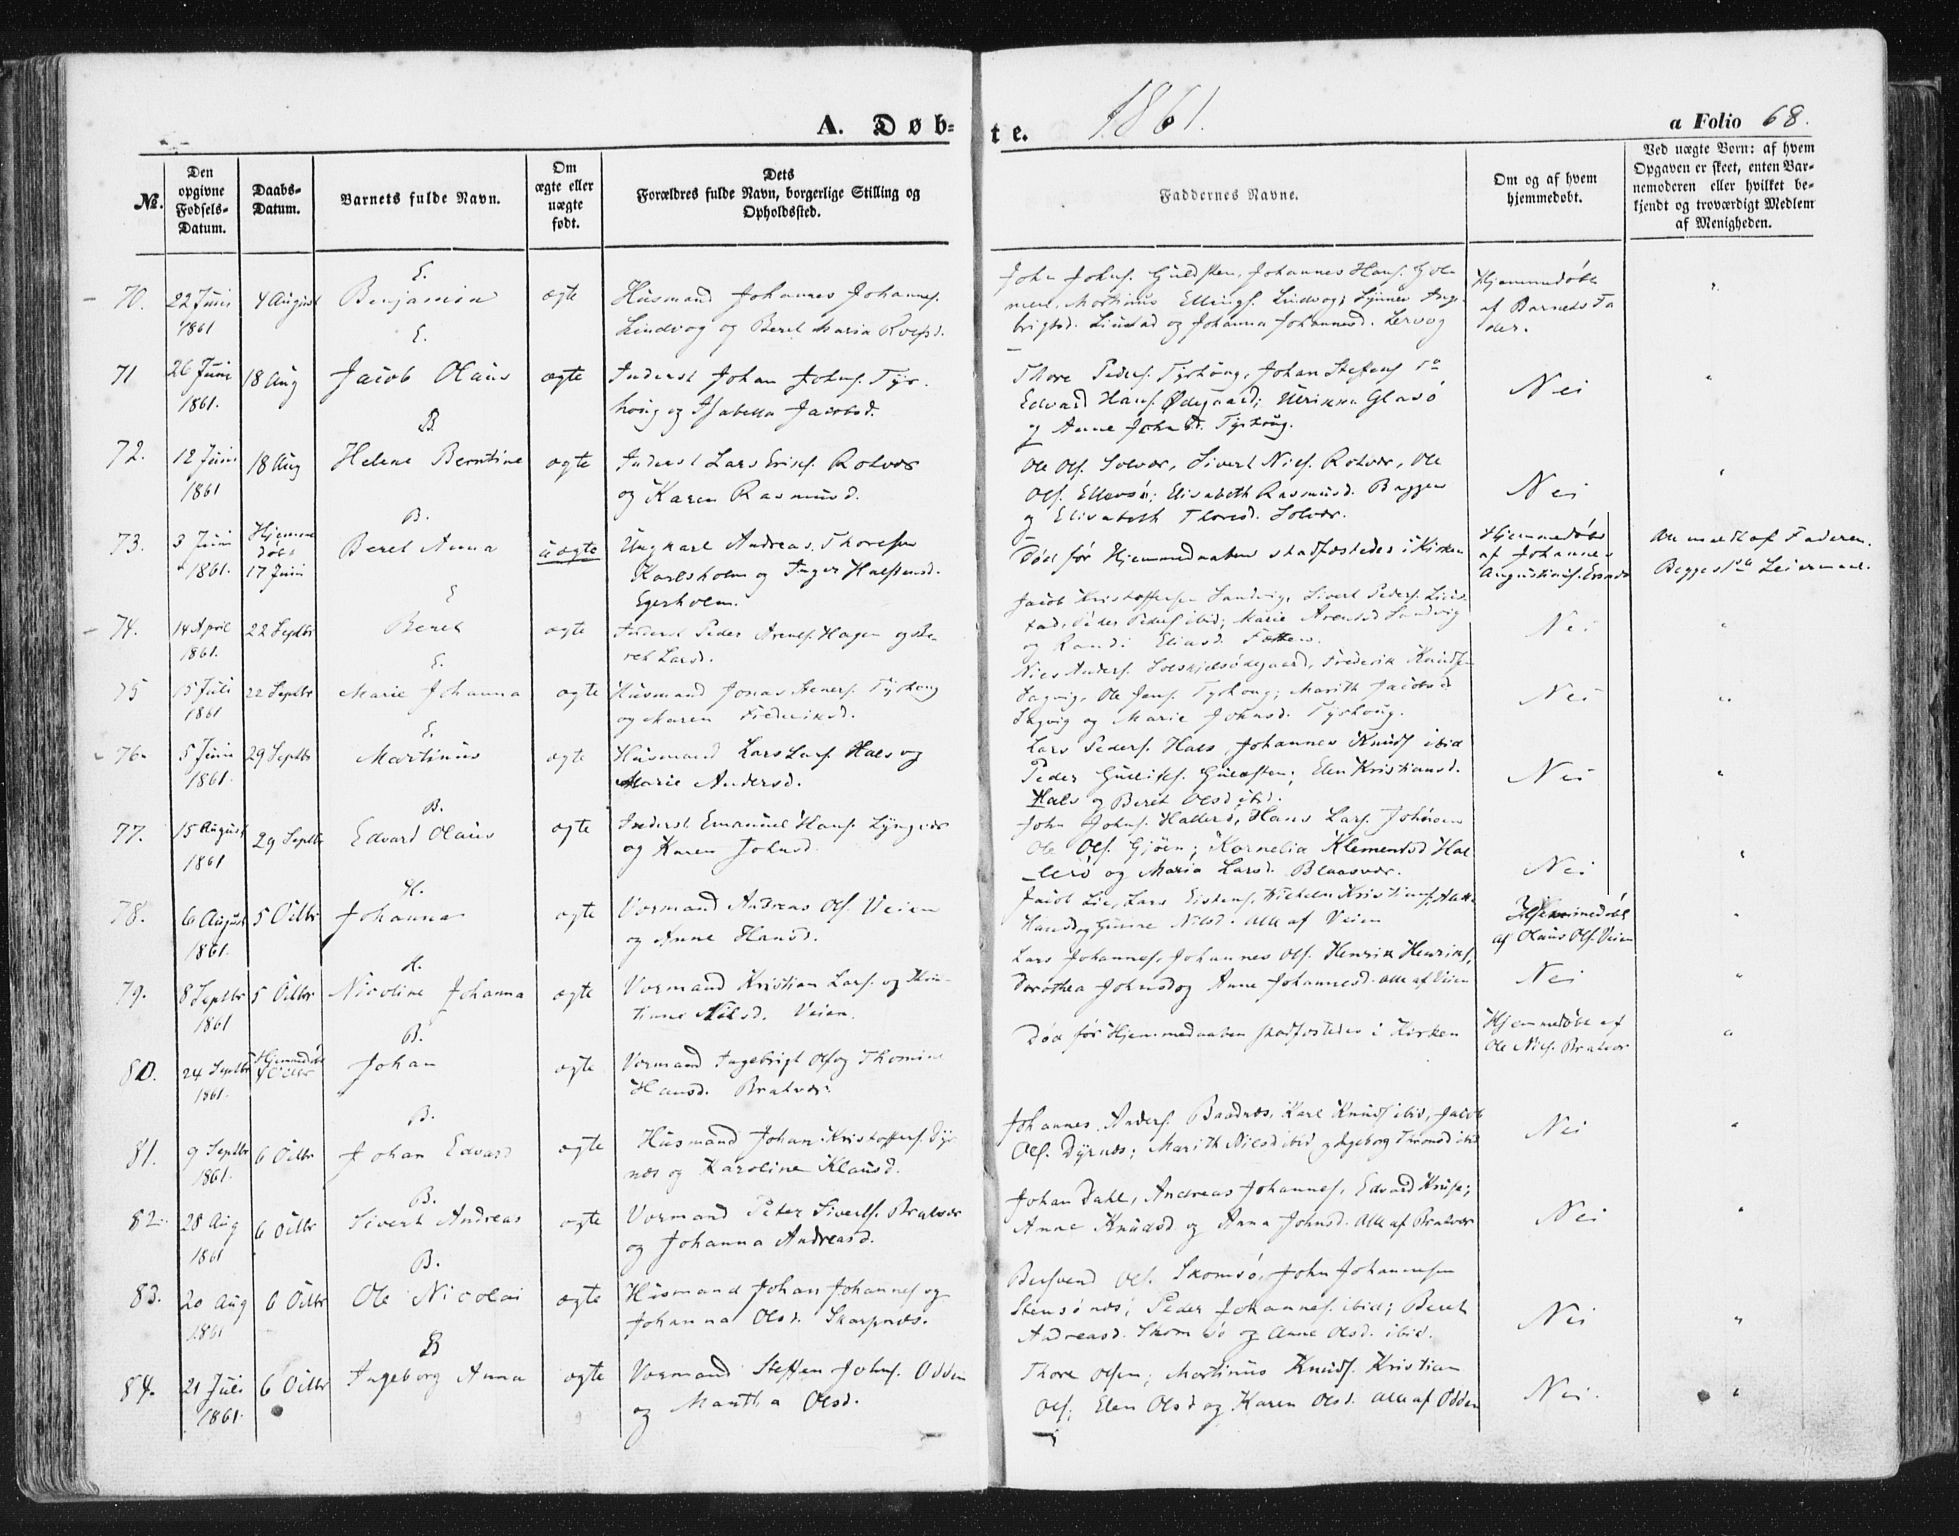 A. Døb-
te.
1861.
a Folio 68.
№.
Den opgivne Fødsels-Datum.
Daabs-Datum.
Barnets fulde Navn.
Om ægte eller uægte født.
Dets Forældres fulde Navn, borgerlige Stilling og Opholdssted.
Faddernes Navne.
Om og af hvem hjemmedøbt.
Ved uægte Børn: af hvem Opgaven er skeet, enten Barnemoderen eller hvilket bekjendt og troværdigt Medlem af Menigheden.
E.
70. 22 Juni 1861 4 August Benjamin ægte Husmand Johannes Johannes.
Lindvog og Beret Maria
John Johns. Guldsten, Johannes Hans.
Mortinus Ellings. Lindvog; Synnev
Liustad og Johanna Johannesd. Lervog
Hjemmedøbt
af Barnets Fa
der.
E.
71 26 Juni 1861. 18 Aug Jacob Olaus ægte Inderst Johan Johns. Tyr-
houg og Isabella Jacobsd.
Thore Peders. Tyrhoug, Johan Steffens
Edvard Hans. Ødegaard; Ulrikka Glasø
og Anne Johnsd. Tyrhoug.
Nei
B.
72. 12 Juni 1861 18 Aug Helene Berntine ægte Inderst Lars Eriks. Rotvær
og Karen Rasmusd.
Ole Ols. Solvær, Sivert Niels. Rotvær, Ole
Ols. Ellevsø; Elisabeth Rasmusd. Baggen
og Elisabeth Thoresd. Solvær.
Nei
B.
73. 3 Juni 1861. Hjemme
døbt
17 Juni
Beret Anna uægte Ungkarl Andreas Thoresen
Karlsholm og Inger Halstensd.
Egerholm.
Død før Hjemmedaaben stadfæstedes i Kirken
Hjemmedøbt
af Johannes
Augustinus.
Anmeldt af Faderen.
Begges 1ste Leiermaal.
E
74. 14 April 1861. 22 Septbr Beret ægte Inderst Peder Arents. Hagen og Be-
ret Larsd.
Jacob Kristoffersen Sandvig, Sivert Peders. Lius-
tad, Peder Peders. ibid; Marie Arentsd Sandvig
og Randi Eliasd. Fætten.
Nei
E.
75 15 Juli 1861 22 Septbr Marie Johanna ægte Husmand Jonas Tyrhoug
og Maren Frederiksd.
Niels Anders. Frederik Knuds.
Sagvig, Ole Jens. Tyrhoug; Marith Jacobsd
Sagvig og Marie Johnsd. Tyrhoug.
Nei
E.
76. 5 Juni 1861. 29 Septbr Martinus ægte Husmand Lars Lars. Hals og
Marie Andersd.
Lars Peders. Hals, Johannes Knuds ibid
Peder Gulliks. Guldsten; Elen Kristiansd.
Hals og Beret Olsd ibid.
Nei
B.
77. 15 August 1861 29 Septbr Edvard Olaus ægte Inderst Emanuel Hans. Lyngvær
og Karen Johnsd.
John Johns. Hallerø, Hans Lars.
Ole Ols. Gjøen; Kornelia Klementsd Hal-
lerø og Maria Larsd. Blaasvær.
Nei
H.
78. 6 August 1861. 5 Octbr Johanna ægte Vormand Andreas Ols. Veien
og Anne Hansd.
Jacob Lie, Lars Wilhelm Kristians.
Hansd og Gurine Nilsd. alle af Veien
Hjemmedøbt
af Olaus Ols. Veien
H.
79. 8 Septbr 1861 5 Octbr Nicoline Johanna ægte Vormand Kristian Lars. og
Nilsd. Veien.
Lars Johannes., Johannes Ols. Henrik Henriks.
Dorothea Johnsd og Anne Johannesd. alle af Veien
Nei
B.
80. 24 Septbr 1861. Hjemmedøbt
Octbr
Johan ægte Vormand Ingebrigt Ols og Thomine
Hansd. Bratvær.
Død før Hjemmedaaben stadfæstedes i Kirken
Hjemmedøbt af
Ole Niels. Bratvær
B.
81. 9 Septbr 1861. 6 Octbr Johan Edvard ægte Husmand Johan Kristoffers. Dyr
næs og Karoline Klausd.
Johannes Anders. Baadnæs, Karl Knuds ibid, Jacob
Ols. Dyrnæs; Marith Nilsd ibid og Ingeborg ibid
Nei
B.
82. 28 Aug 1861 6 Octbr Sivert Andreas ægte Vormand Peter Siverts. Bratvær
og Johanna Andreasd.
Johan Dahl, Andreas Johannes., Edvard Kruse;
Anne Knudsd og Anna Johnsd. alle af Bratvær
Nei
B.
83. 20 Aug 1861 6 Octbr Ole Nicolai ægte Husmand Johan Johannes og
Johanna Olsd. Skarpnæs.
Ols. Skomsø, John Johannesen
Stensønæs; Peder Johannes. ibid; Beret
Andreasd. Skomsø og Anne Olsd. ibid.
Nei
B
84. 21 Juli 1861. 6 Octbr Ingeborg Anna ægte Vormand Steffen Johns. Odden
og Martha Olsd.
Thore Olsen; Mortinus Knuds. Kristian
Ols; Elen Olsd og Karen Olsd. alle af Odden
Nei.